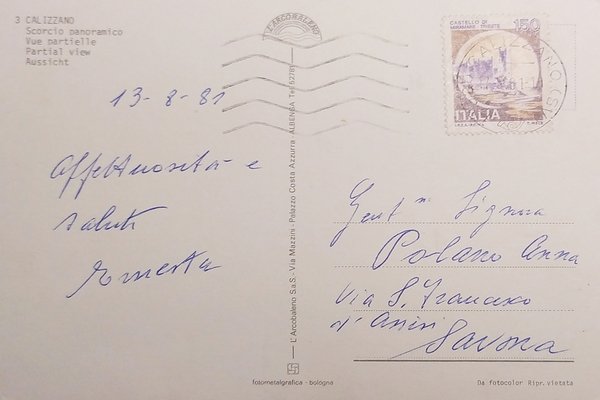 3 CALIZZANO
Scorcio panoramico
Vue partielle
Partial view
Aussicht
L'ARCOBALENO
CASTELLO DI
MIRAMARE - TRIESTE
150
ITALIA
CALIZZANO (SV)
13-8-81
Affettuosità e
saluti
Ernesta
L'Arcobaleno S.a.S. - Via Mazzini - Palazzo Costa Azzurra - ALBENGA Tel. 52781
Gent ma Signora
Polano Anna
Via S. Francesco
d'Assisi
Savona
fotometalgrafica - bologna
Da fotocolor Ripr. vietata